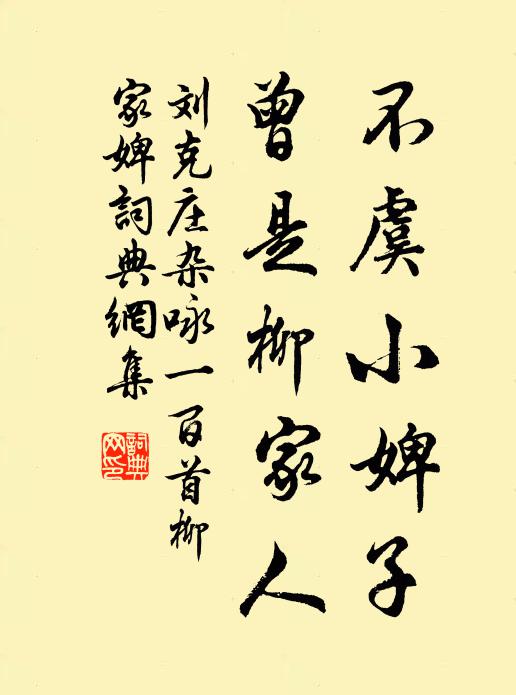 不虞小婢子
曾是柳家人
刘克庄杂咏一百首柳
家婢词典網集
詞典网印